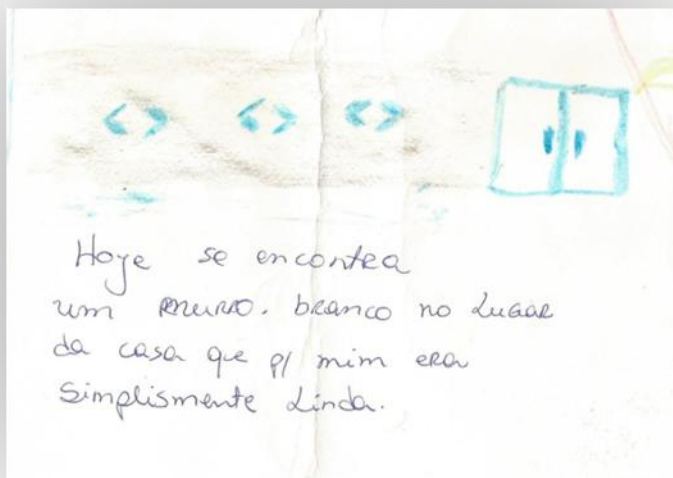 Hoje se encontra
um muro. branco no Lugar
da casa que p/ mim era
Simplismente Linda.